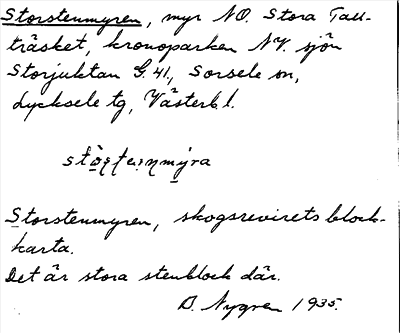 Storstenmyren, myr NO. Stora Tall-
träsket, kronoparken NV. sjön
Storjuktan G.41, Sorsele sn,
Lycksele tg, Västerb.l.
stǫ̀ʂʈei̯ɳmýra
Storstenmyren, skogsrevirets block-
karta.
Det är stora stenblock där.
D. Nygren 1935.